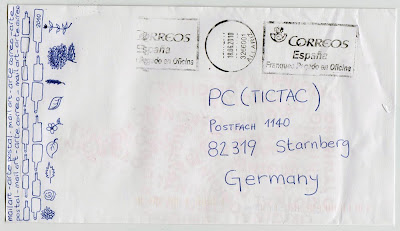 mail art - arte postal - mail art - arte correo - mail art - arte correo
postal - mail art - arte correo - mail art - arte
2010
CORREOS
España
Pagado en Oficina
18062010
3266001
CORREOS
España
Franqueo Pagado en Oficina
PC (TICTAC)
POSTFACH 1140
82319 Starnberg
Germany